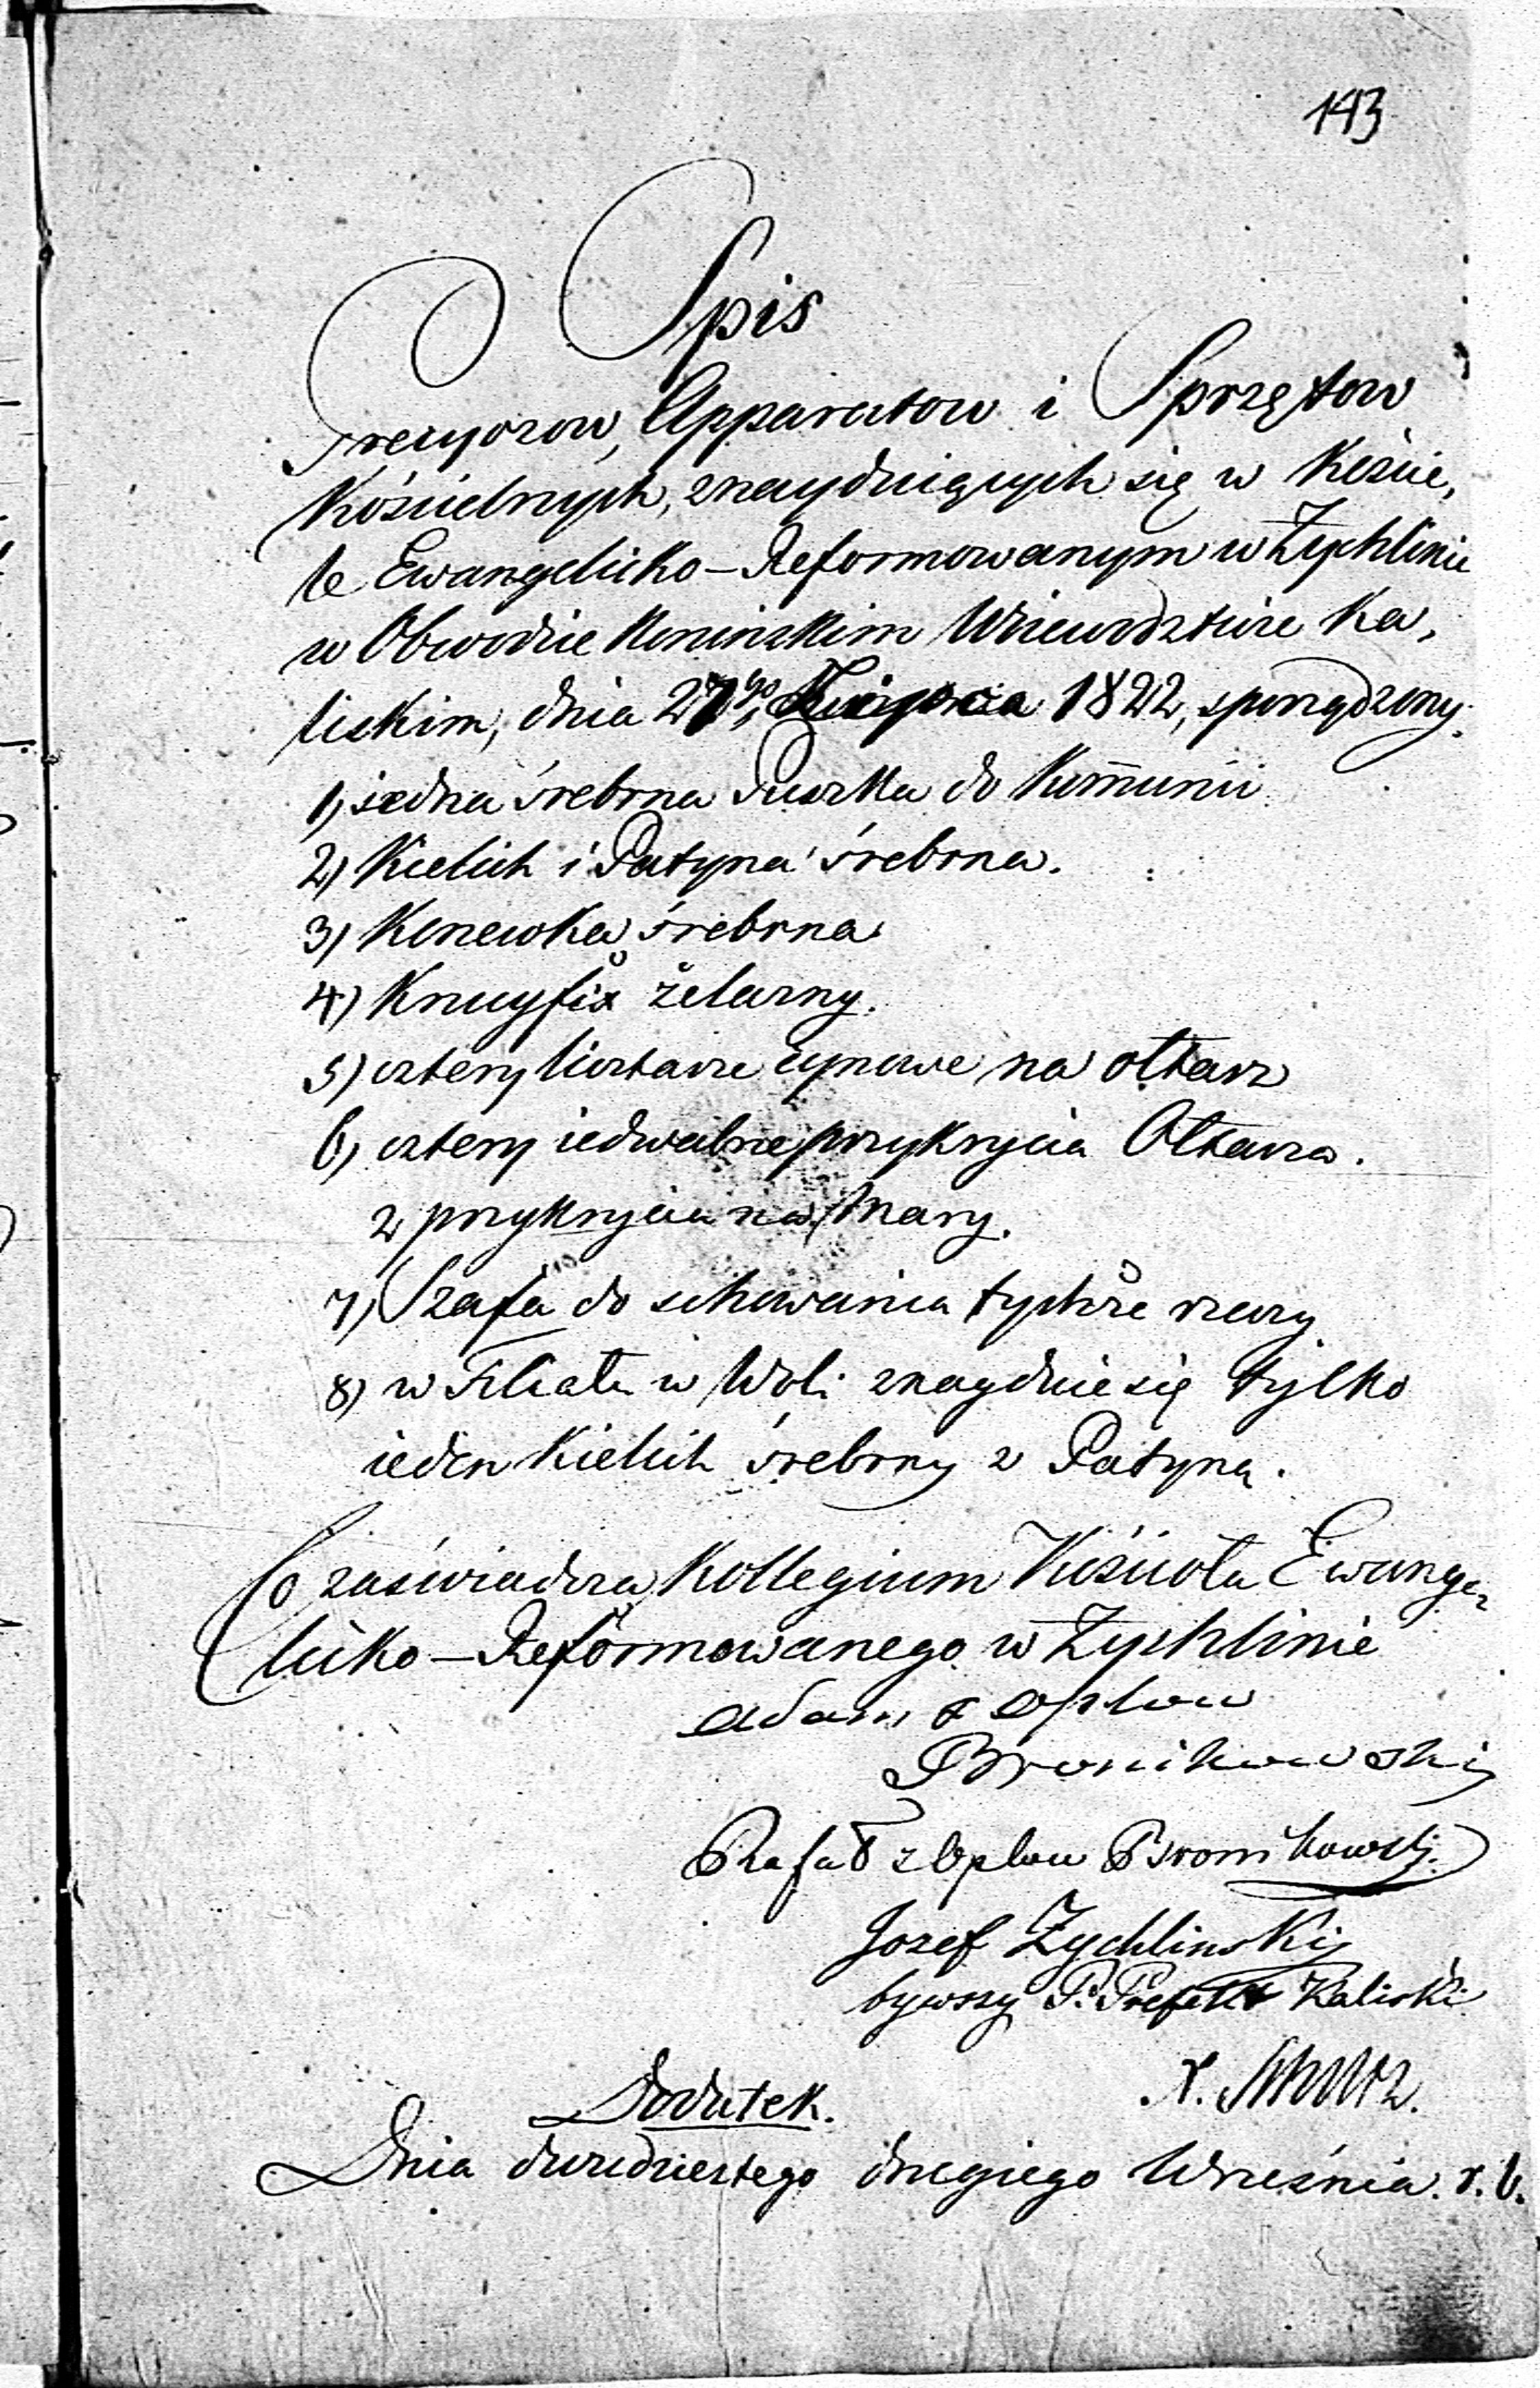 143
Spis
Precyozow, Apparatow i Sprzętow
Kościelnych, znayduiących się w Koście,
le Ewangelicko-Reformowanym w Żychlinie
w Obwodzie Konińskim Woiewodztwie Ka,
liskim, dnia 27go 1822, sporządzony.
1, jedna śrebrna Puszka do Komunii
2) Kielich i Patyna śrebrna.
3) Konewka śrebrna
4) Krucyfix żelazny.
5) cztery lichtarze cynowe na ołtarz
6) cztery iedwabne przykrycia Ołtarza.
2 przykrycia na Mary.
7) Szafa do schowania tychże rzeczy
8) w Filiału w Woli znayduie się tylko
ieden Kielich śrebrny z Patyną.
Co zaświadcza Kollegium Kościoła Ewange,
licko-Reformowanego w Żychlinie
Adam z Oplow
Bronikowski
Rafał z Oplow Bronikowski.
Jozef Żychlinski
bywszy P. Prefekt Kaliski
X. Scholtz.
Dodatek.
Dnia dwudziestego drugiego Września. r. b.